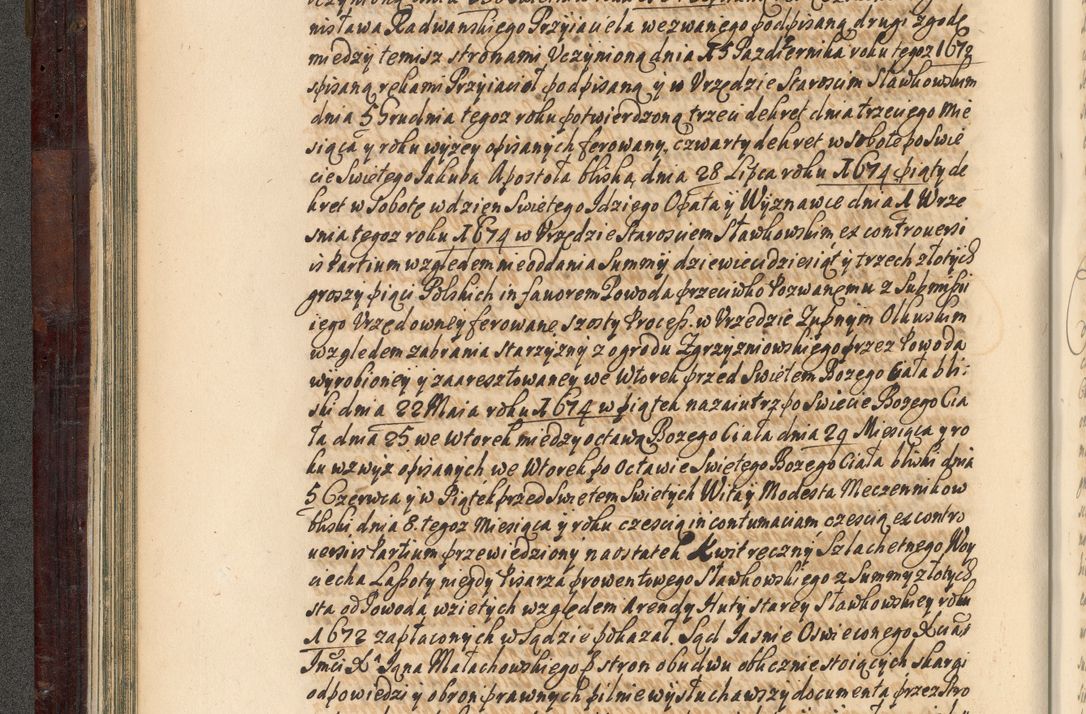 nisława Radwanskiego Przyiaciela wezwanego podpisaną drugi zgodę
miedzy temisz stronami Uczynioną dnia 15 Pazdziernika roku tegoz 1672
spisaną rękami Przyiacioł podpisaną y w Urzędzie Staroscim Sławkowskim
dnia 5 Grudnia tegoz roku potwierdzoną trzeci dekret dnia trzeciego Mie
siąca y roku wyzey opisanych ferowany, czwarty dekret w Sobote po Swie
cie Swietego Jakuba Apostoła bliską dnia 28 Lipca roku 1674 piąty de
kret w Sobotę w dzien Swietego Idziego Opata y Wyznawce dnia 1 Wrze
snia tegoz roku 1674 w Urzędzie Starosciem Sławkowskim ex controuersi
is Partium względem nieoddania Summy dziewiecidziesiąt y trzech złotych
groszy pięci Polskich in fauorem Powoda przeciwko Pozwanemu z
iego Urzędowney ferowane szosty Process w Urzedzie Zupnym Olkuskim
względem zabrania starzyzny z ogrodu Zgrzyzniowskiego przez Powoda
wyrobioney y zaaresztowaney we Wtorek przed Swietem Bozego Ciała bli-
ski dnia 22 Maia roku 1674 w piątek nazaiutrz po Swiecie Bozego Cia
ła dnia 25 we Wtorek miedzy octawą Bozego Ciała dnia 29 Miesiąca y ro
ku wzwyz opisanych we Wtorek po Octawie Swiętego Bozego Ciała bliski dnia
5 Czerwca y w Piątek przed Swietem Swietych Wita y Modesta Meczennikow
bliski dnia 8. tegoz Miesiąca y roku czescią in contumaciam czescią ex contro
uersiis Partium przewiedziony naostatek Kwit ręczny Szlachetnego Woy
ciecha Lassoty niegdy Pisarza prowentowego Sławkowskiego z Summy złotych
sta od Powoda wzietych względem Arendy Huty starey Sławkowskiey roku
1672 zapłaconych w Sądzie pokazał. Sąd Jasnie Oswieconego Xcia
Jmci Xa Jana Małachowskiego stron obudwu oblicznie stoiących skargi
odpowiedzi y obron prawnych pilnie wysłuchawszy documenta przez stro